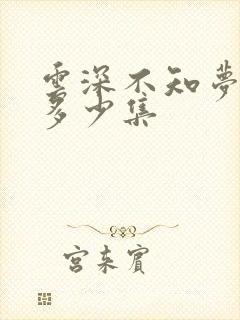 雲深不知夢
多少集
宮来賓